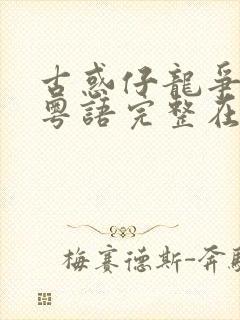 古惑仔龍爭
粵語完整在
梅賽德斯-奔馳